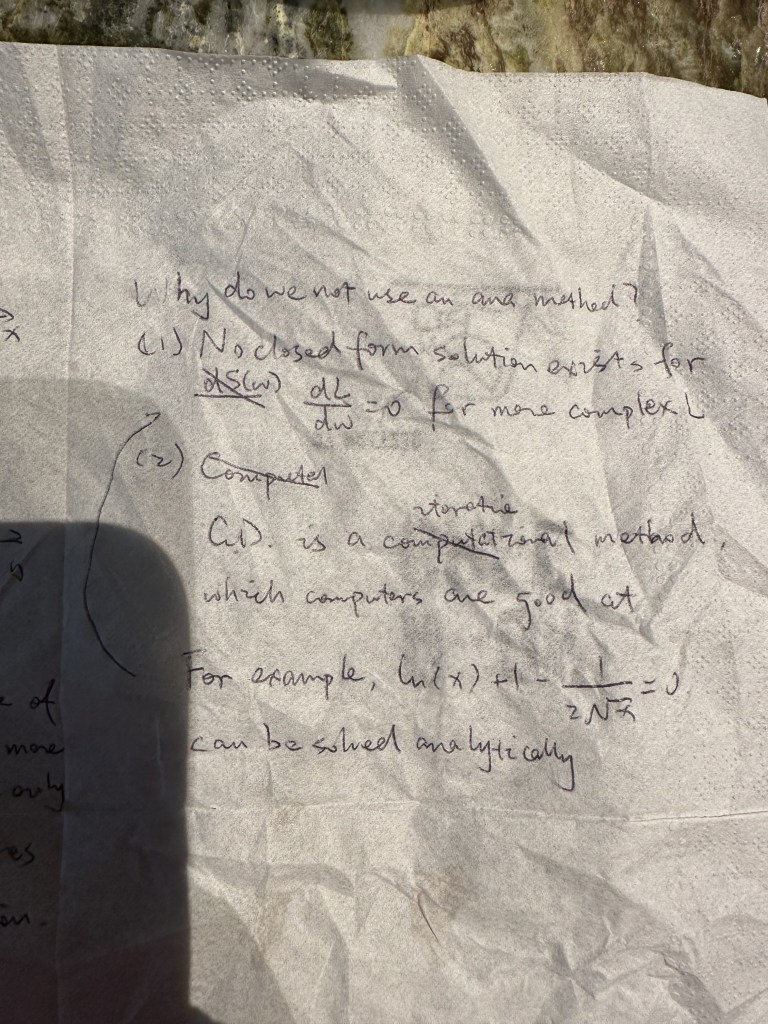 Why do we not use an ana method?
(1) No closed form solution exists for
dS(w) dL/dw = 0 for more complex L
(2) Computer
iterative
G.D. is a computational method,
which computers are good at
For example, ln(x) + 1 - 1/(2√x) = 0
can be solved analytically
x
of
more
only
es
on.